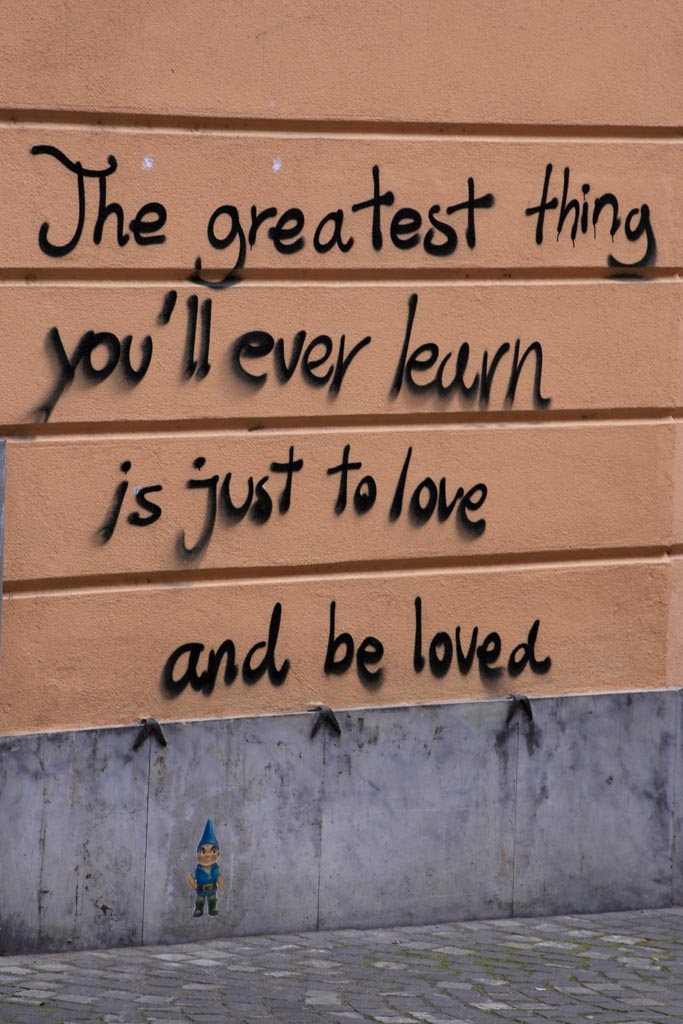 The greatest thing
you'll ever learn
is just to love
and be loved